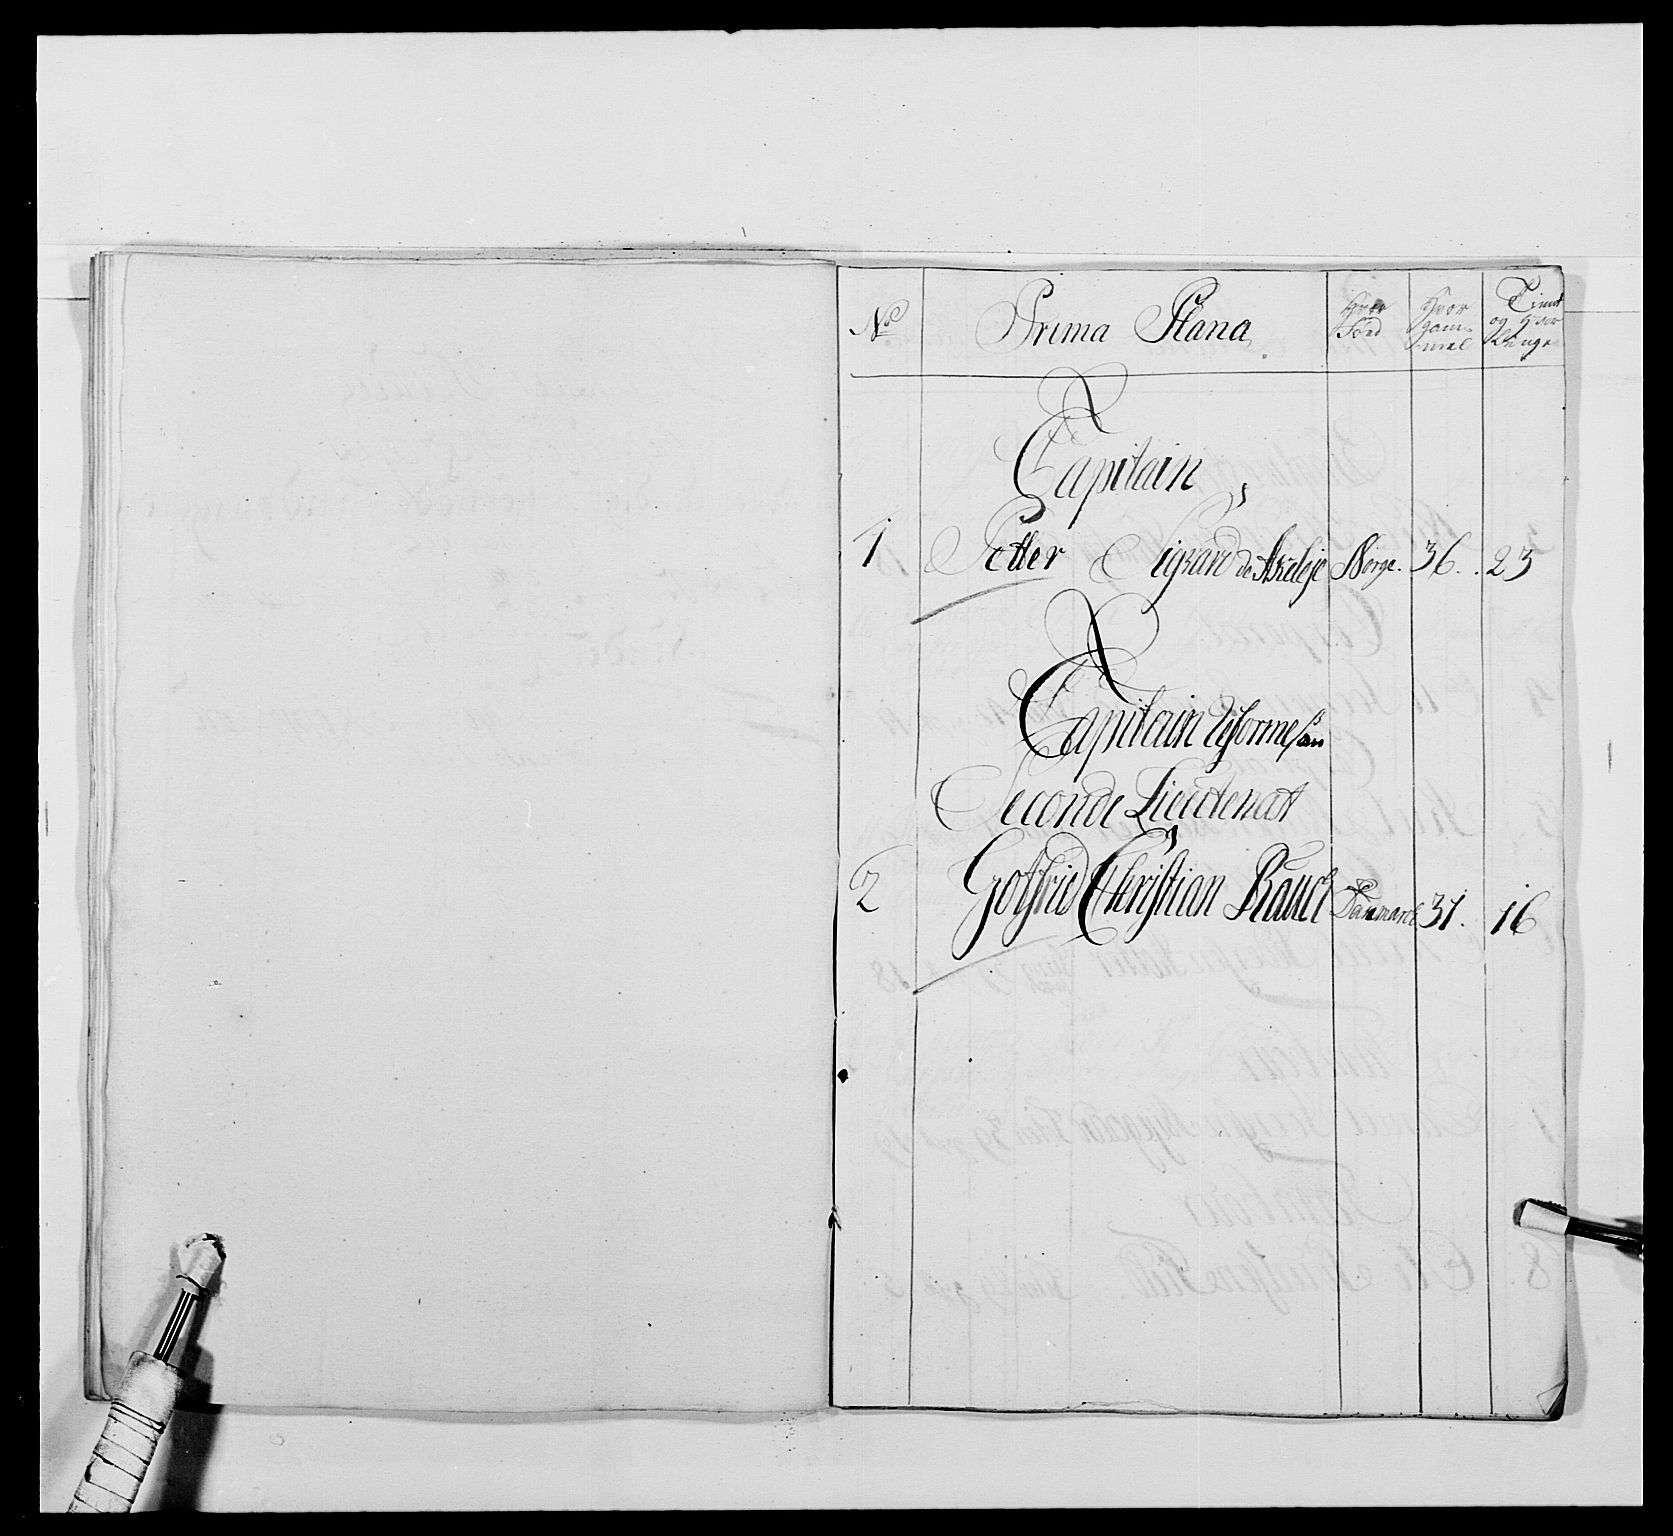 No Prima Plana Hvor Född Hvor gam- mel Tient og Hvor Lenge
Capitain
1 Petter Sigvard de Akeleje Norge. 36. 23
Capitain Reforme
Seconde Lieutenat
2 Gotfrid Christian Rauch Danmarck 31. 16